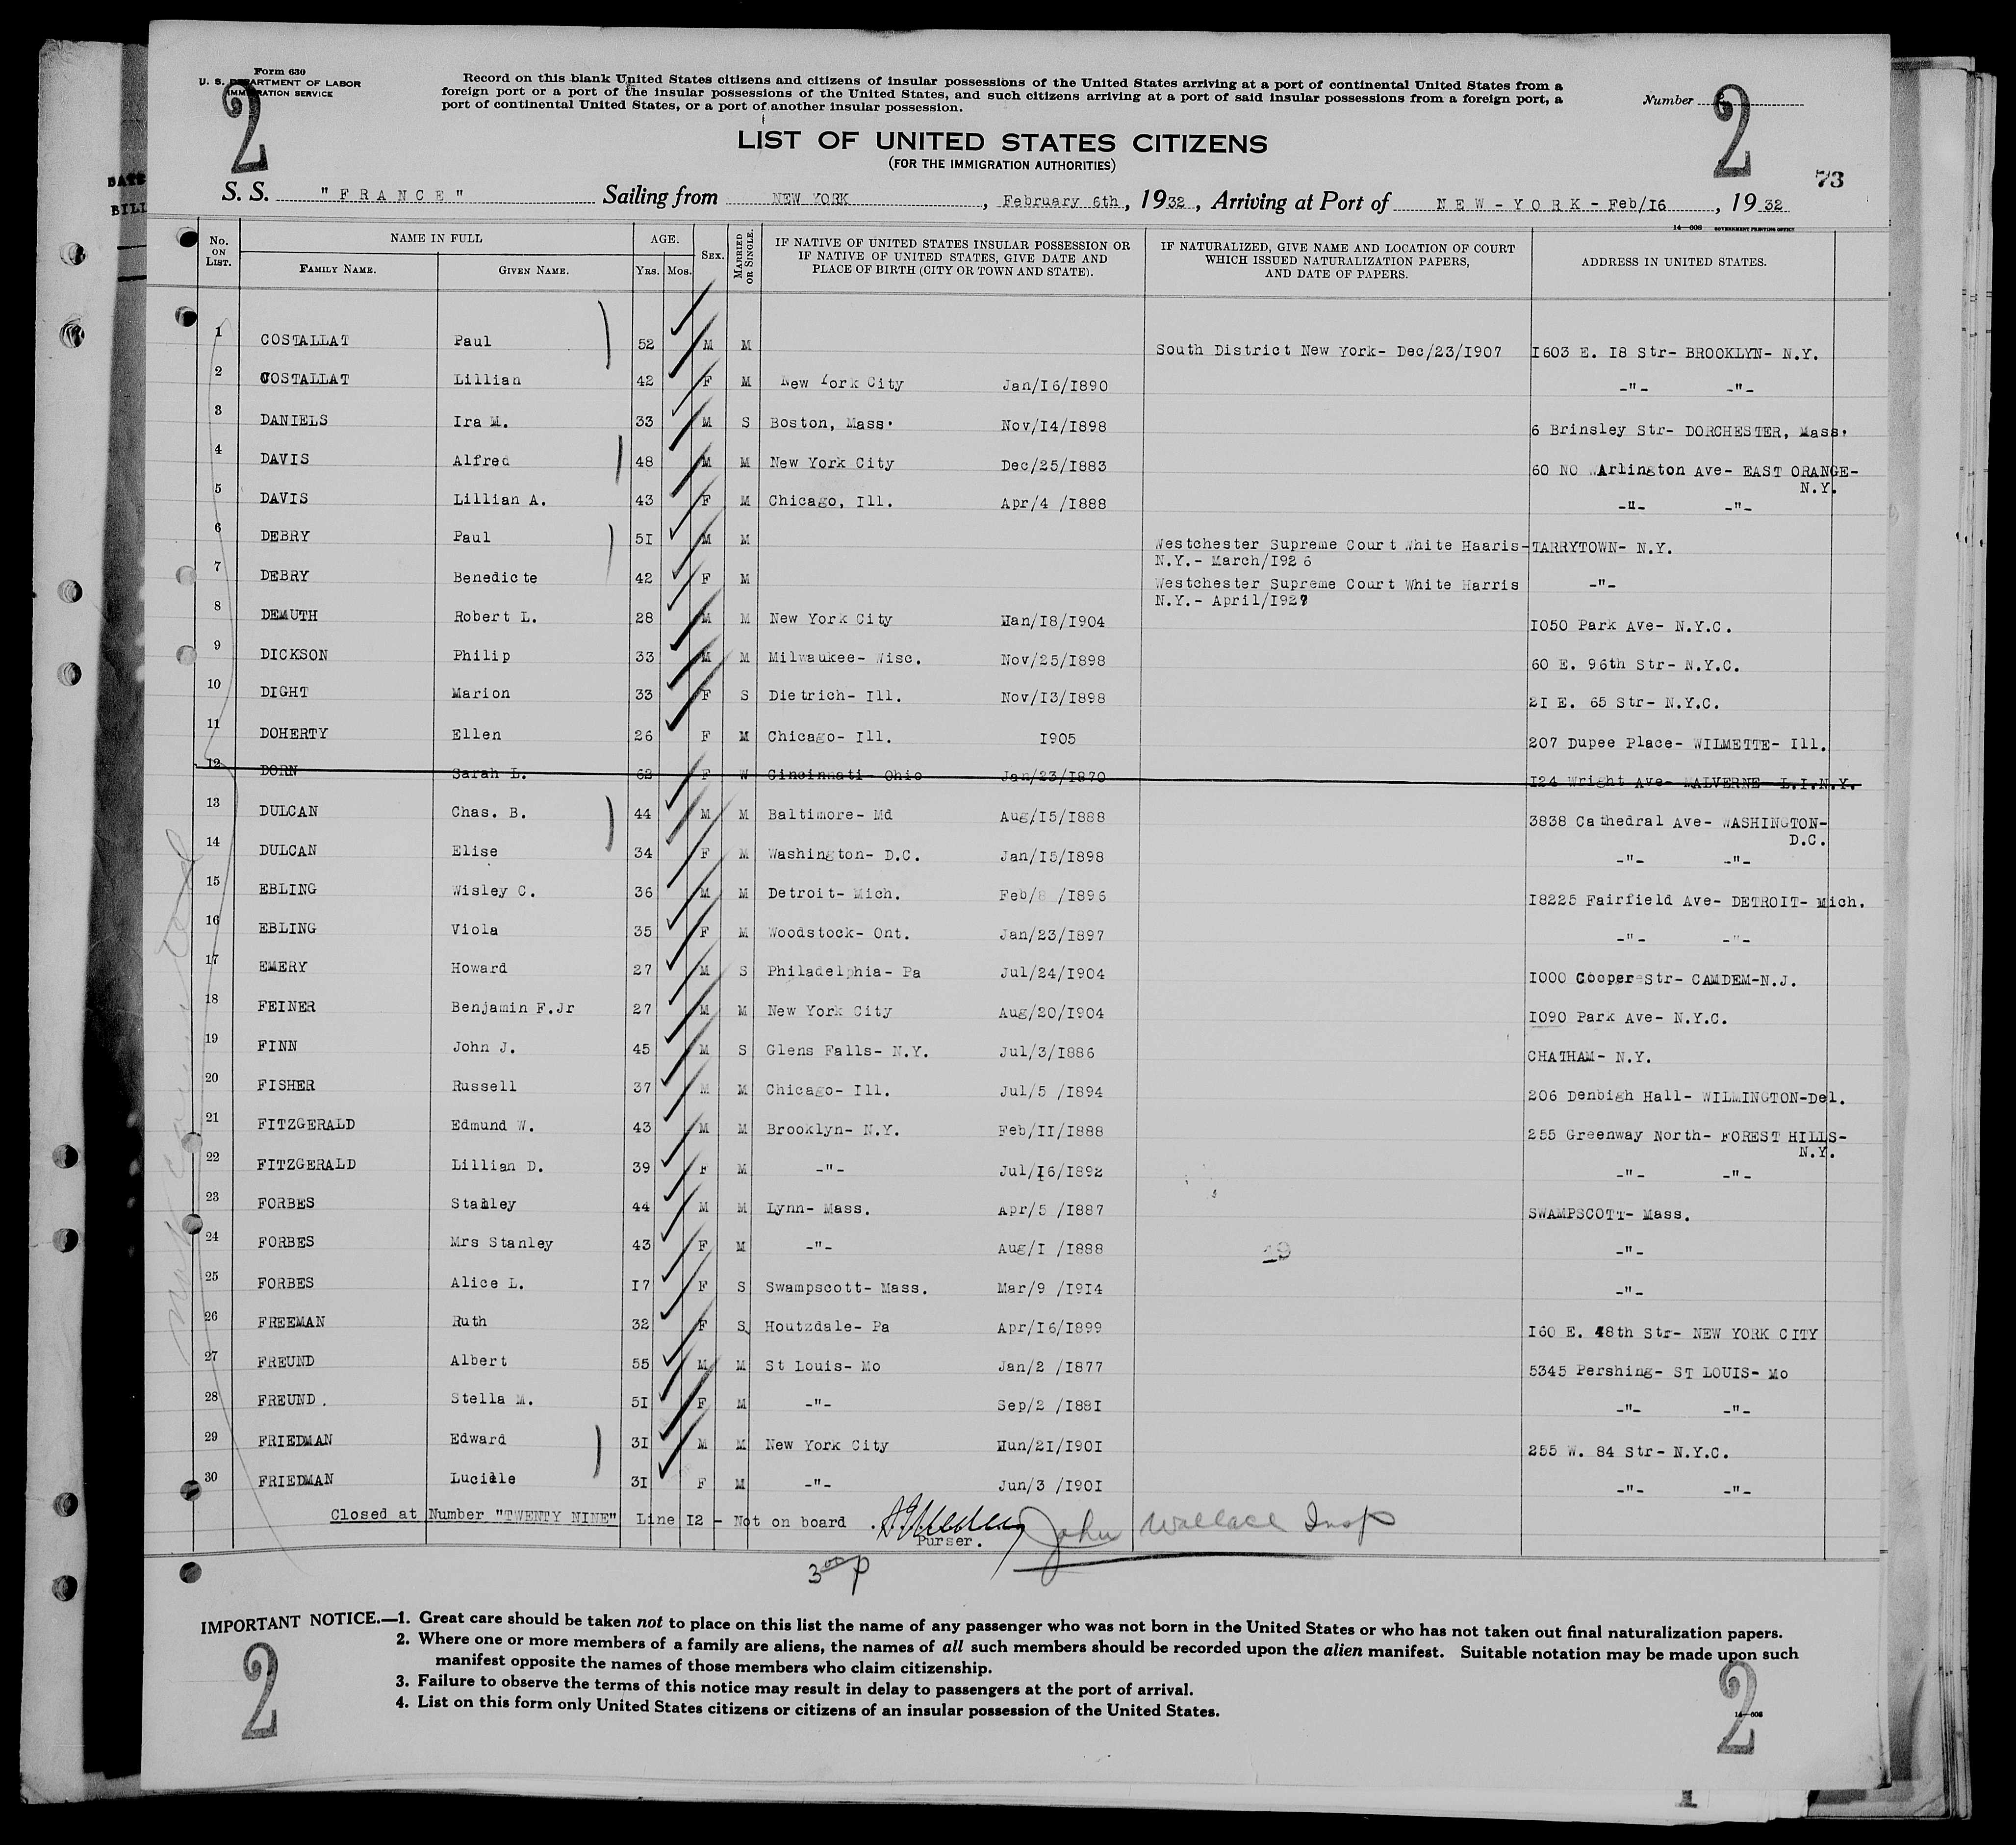 Form 630
U. S. DEPARTMENT OF LABOR
IMMIGRATION SERVICE
2
Record on this blank United States citizens and citizens of insular possessions of the United States arriving at a port of continental United States from a
foreign port or a port of the insular possessions of the United States, and such citizens arriving at a port of said insular possessions from a foreign port, a
port of continental United States, or a port of another insular possession.
Number
2
LIST OF UNITED STATES CITIZENS
(FOR THE IMMIGRATION AUTHORITIES)
73
S. S. "FRANCE" Sailing from NEW YORK, February 6th, 1932, Arriving at Port of NEW-YORK- Feb/I6, 1932
14—608 GOVERNMENT PRINTING OFFICE
No. ON LIST. NAME IN FULL FAMILY NAME. GIVEN NAME. AGE. Yrs. Mos. SEX. MARRIED OR SINGLE. IF NATIVE OF UNITED STATES INSULAR POSSESSION OR IF NATIVE OF UNITED STATES, GIVE DATE AND PLACE OF BIRTH (CITY OR TOWN AND STATE). IF NATURALIZED, GIVE NAME AND LOCATION OF COURT WHICH ISSUED NATURALIZATION PAPERS, AND DATE OF PAPERS. ADDRESS IN UNITED STATES.
1 COSTALLAT Paul 52 M M South District New York- Dec/23/I907 I603 E. I8 Str- BROOKLYN- N.Y.
2 COSTALLAT Lillian 42 F M New York City Jan/I6/I890 -"- -"-
3 DANIELS Ira M. 33 M S Boston, Mass. Nov/I4/I898 6 Brinsley Str- DORCHESTER, Mass.
4 DAVIS Alfred 48 M M New York City Dec/25/I883 60 NO Arlington Ave- EAST ORANGE-
N.Y.
5 DAVIS Lillian A. 43 F M Chicago, Ill. Apr/4 /I888 -"- -"-
6 DEBRY Paul 5I M M Westchester Supreme Court White Haaris- TARRYTOWN- N.Y.
N.Y.- March/I926
7 DEBRY Benedicte 42 F M Westchester Supreme Court White Harris -"-
N.Y.- April/I927
8 DEMUTH Robert L. 28 M M New York City Han/I8/I904 I050 Park Ave- N.Y.C.
9 DICKSON Philip 33 M M Milwaukee- Wisc. Nov/25/I898 60 E. 96th Str- N.Y.C.
10 DIGHT Marion 33 F S Dietrich- Ill. Nov/I3/I898 2I E. 65 Str- N.Y.C.
11 DOHERTY Ellen 26 F M Chicago- Ill. I905 207 Dupee Place- WILMETTE- Ill.
12 DORN Sarah L. 62 F W Cincinnati- Ohio Jan/23/I870 I24 Wright Ave- MALVERNE- L.I.N.Y.
13 DULCAN Chas. B. 44 M M Baltimore- Md Aug/I5/I888 3838 Cathedral Ave- WASHINGTON-
D.C.
14 DULCAN Elise 34 F M Washington- D.C. Jan/I5/I898 -"- -"-
15 EBLING Wisley C. 36 M M Detroit- Mich. Feb/8 /I896 I8225 Fairfield Ave- DETROIT- Mich.
16 EBLING Viola 35 F M Woodstock- Ont. Jan/23/I897 -"- -"-
17 EMERY Howard 27 M S Philadelphia- Pa Jul/24/I904 I000 Cooper Str- CAMDEM-N.J.
18 FEINER Benjamin F.Jr 27 M M New York City Aug/20/I904 I090 Park Ave- N.Y.C.
19 FINN John J. 45 M S Glens Falls- N.Y. Jul/3/I886 CHATHAM- N.Y.
20 FISHER Russell 37 M M Chicago- Ill. Jul/5 /I894 206 Denbigh Hall- WILMINGTON-Del.
21 FITZGERALD Edmund W. 43 M M Brooklyn- N.Y. Feb/II/I888 255 Greenway North- FOREST HILLS-
N.Y.
22 FITZGERALD Lillian D. 39 F M -"- Jul/I6/I892 -"- -"-
23 FORBES Stanley 44 M M Lynn- Mass. Apr/5 /I887 SWAMPSCOTT- Mass.
24 FORBES Mrs Stanley 43 F M -"- Aug/I /I888 19 -"-
25 FORBES Alice L. I7 F S Swampscott- Mass. Mar/9 /I9I4 -"-
26 FREEMAN Ruth 32 F S Houtzdale- Pa Apr/I6/I899 I60 E. 48th Str- NEW YORK CITY
27 FREUND Albert 55 M M St Louis- Mo Jan/2 /I877 5345 Pershing- ST LOUIS- Mo
28 FREUND. Stella M. 5I F M -"- Sep/2 /I88I -"- -"-
29 FRIEDMAN Edward 3I M M New York City Hun/2I/I90I 255 W. 84 Str- N.Y.C.
30 FRIEDMAN Lucille 3I F M -"- Jun/3 /I90I -"- -"-
Closed at Number "TWENTY NINE" Line I2 - Not on board
Purser.
John Wallace Insp
IMPORTANT NOTICE.—1. Great care should be taken not to place on this list the name of any passenger who was not born in the United States or who has not taken out final naturalization papers.
2. Where one or more members of a family are aliens, the names of all such members should be recorded upon the alien manifest. Suitable notation may be made upon such
manifest opposite the names of those members who claim citizenship.
3. Failure to observe the terms of this notice may result in delay to passengers at the port of arrival.
4. List on this form only United States citizens or citizens of an insular possession of the United States.
2
2
14—608